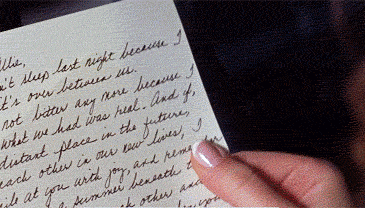 llie,
n't sleep last night because I
it's over between us.
not bitter any more because I
what we had was real. And if,
distant place in the future,
each other in our new lives, I
ile at you with joy, and remem
a summer beneath
other and
you